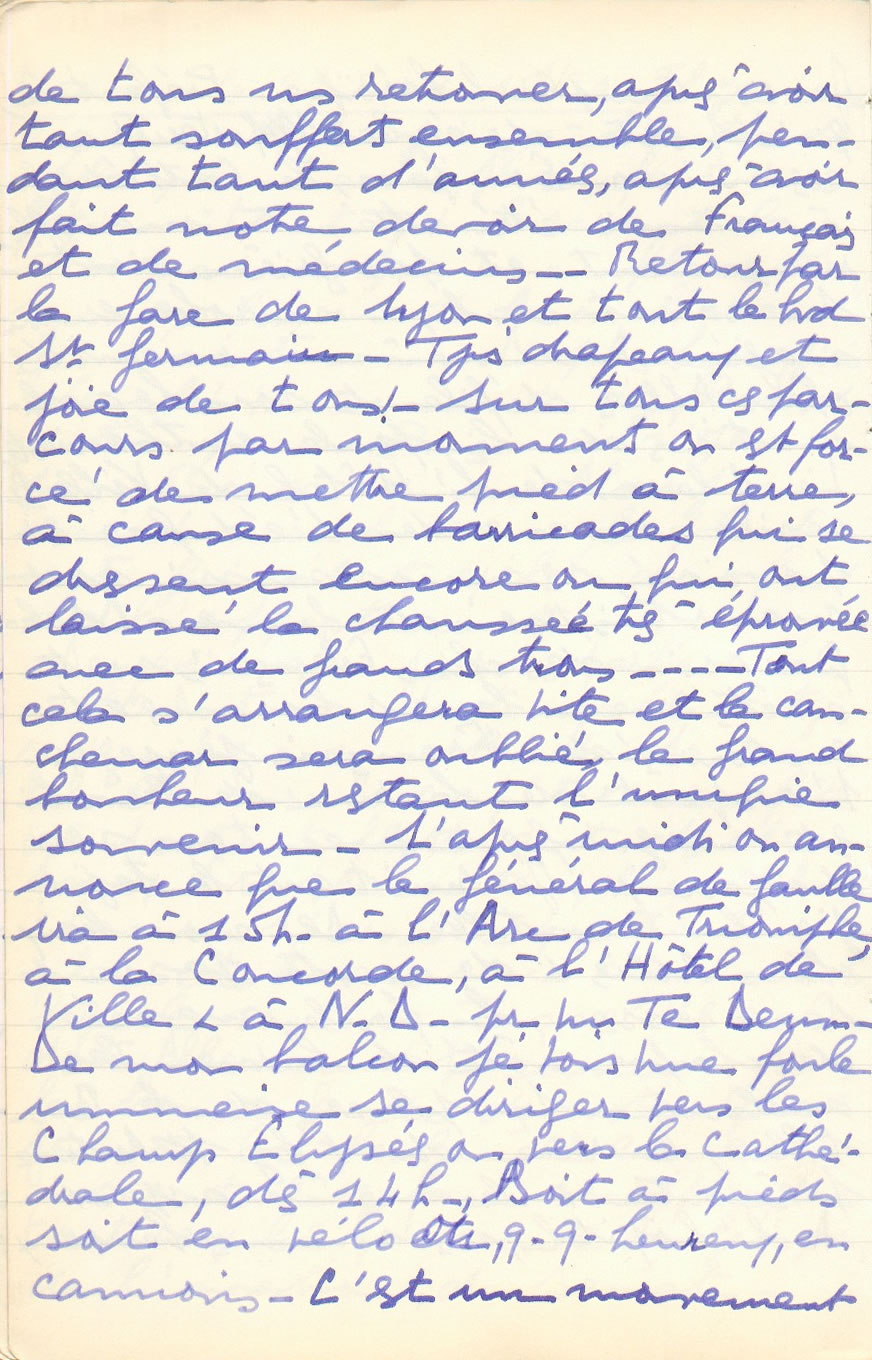 de tous ns retrouver, après avoir
tant souffert ensemble, pen-
dant tant d'années, après avoir
fait notre devoir de Français
et de médecins -- Retour par
la gare de Lyon et tout le bvd
St Germain - Tjs drapeaux et
joie de tous! - Sur tous cs par-
cours par moments on est for-
cé de mettre pied à terre,
à cause de barricades qui se
dressent encore ou qui ont
laissé la chaussée très éprouvée
avec de grands trous ---- Tout
cela s'arrangera vite et le cau-
chemar sera oublié, le grand
bonheur restant l'unique
souvenir - L'après midi on an-
nonce que le général de Gaulle
ira à 15h- à l'Arc de Triomphe,
à la Concorde, à l'Hôtel de
Ville & à N.D- pr un Te Deum-
De mon balcon je vois une foule
immense se diriger vers les
Champs Elysées ou vers la Cathé-
drale, dès 14h-, Soit à pieds
soit en vélo 9-9- heureux, en
camions - C'est un mouvement